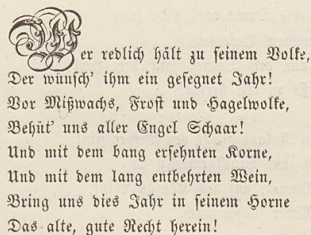 Wer redlich hält zu seinem Volke,
Der wünsch' ihm ein gesegnet Jahr!
Vor Mißwachs, Frost und Hagelwolke,
Behüt' uns aller Engel Schaar!
Und mit dem bang ersehnten Korne,
Und mit dem lang entbehrten Wein,
Bring uns dies Jahr in seinem Horne
Das alte, gute Recht herein!